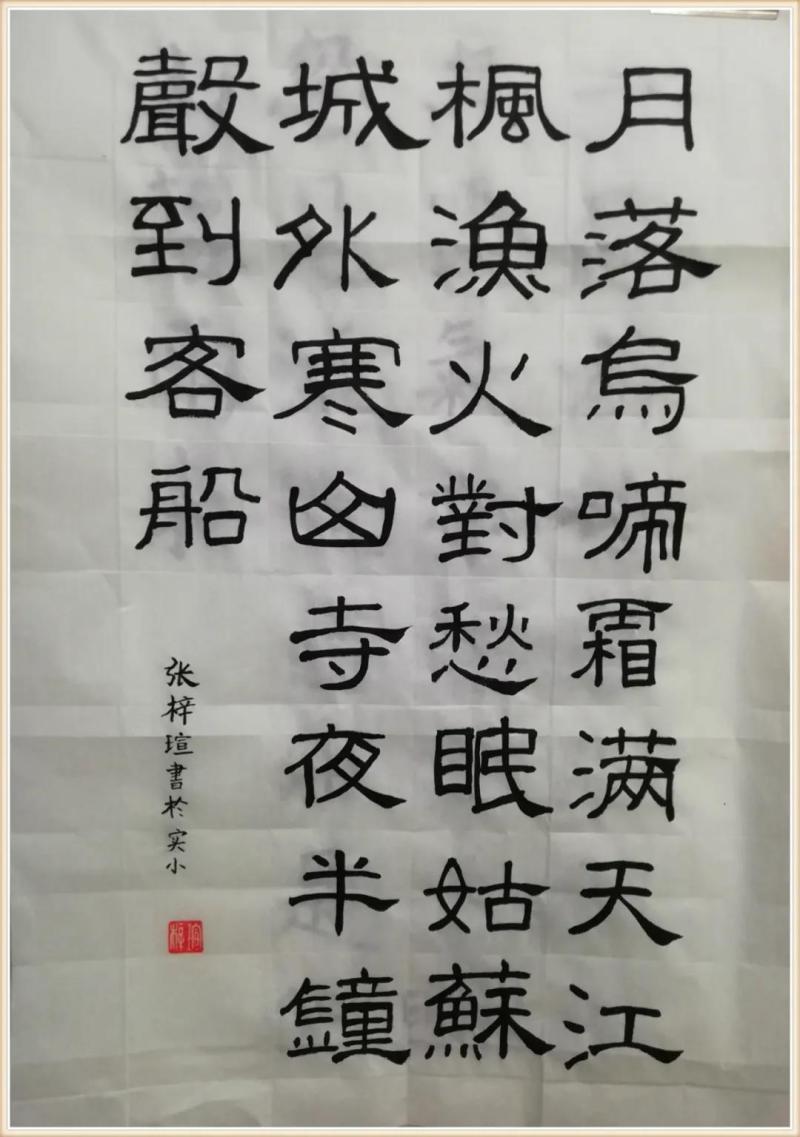 月落烏啼霜滿天江
楓漁火對愁眠姑蘇
城外寒山寺夜半鐘
聲到客船
张梓瑄書於实小